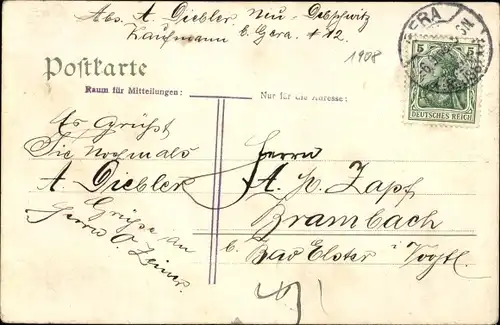 Abs. A. Diebler, Neu-Debschwitz
Kaufmann b. Gera. # 12
1908
GERA
Postkarte
5 5
DEUTSCHES REICH
Raum für Mitteilungen:
Nur für die Adresse:
Es Grüßt
Sie nochmals
A. Diebler
Grüße an
Herrn O.
Herrn
A. Zapf
Brambach
b. Bad Elster i Vogtl.